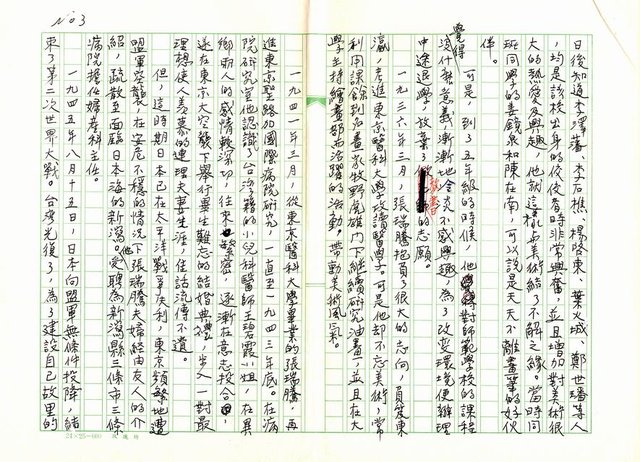 No 3
日後知道李澤藩、李石樵、楊啓東、葉火城、鄭世璠等人
，均是該校出身的佼佼者時非常興奮，並且增加對美術很
大的熱愛及興趣，他就這樣与美術結了不解之緣。當時同
班同學的姜鏡泉和陳在南，可以說是天天不離畫筆的好伙
伴。
可是，到了五年級的時候，他對師範學校的課程
覺得沒什麼意義，漸漸地念與不感興趣，為了改変環境便辦理
中途退學，放棄了當畫師的志願。
一九三六年三月，張瑞騰抱負了很大的志向，負笈東
瀛，考進東京醫科大學攻讀醫學。可是他却不忘美術，常
利用課餘到名畫家牧野虎雄門下繼續研究油畫，並且在大
學主持繪畫部而活躍的活動。帶動美術風氣。
一九四一年三月，從東京醫科大學畢業的張瑞騰，再
進東京聖路加國際病院研究，一直至一九四三年底。在病
院研究室他認識了台灣籍的小兒科醫師王碧霞小姐，在異
鄉兩人的感情較深切，往來緊密，逐漸在意志投合，
遂在東京大空襲下舉行畢生難忘的結婚典禮，步入一對最
理想使人羡慕的連理夫妻生涯，佳話流傳不遺。
但，這時期日本已在太平洋戰爭失利，東京頻繁地遭
盟軍空襲，在安危不穩的情況下張瑞騰夫婦經由友人的介
紹，疏散至面臨日本海的新瀉。他受聘為新瀉縣三條市三條
病院擔任婦產科主任。
一九四五年八月十五日，日本向盟軍無條件投降，結
束了第二次世界大戰。台灣光復了，為了建設自己故里的
24×25=600